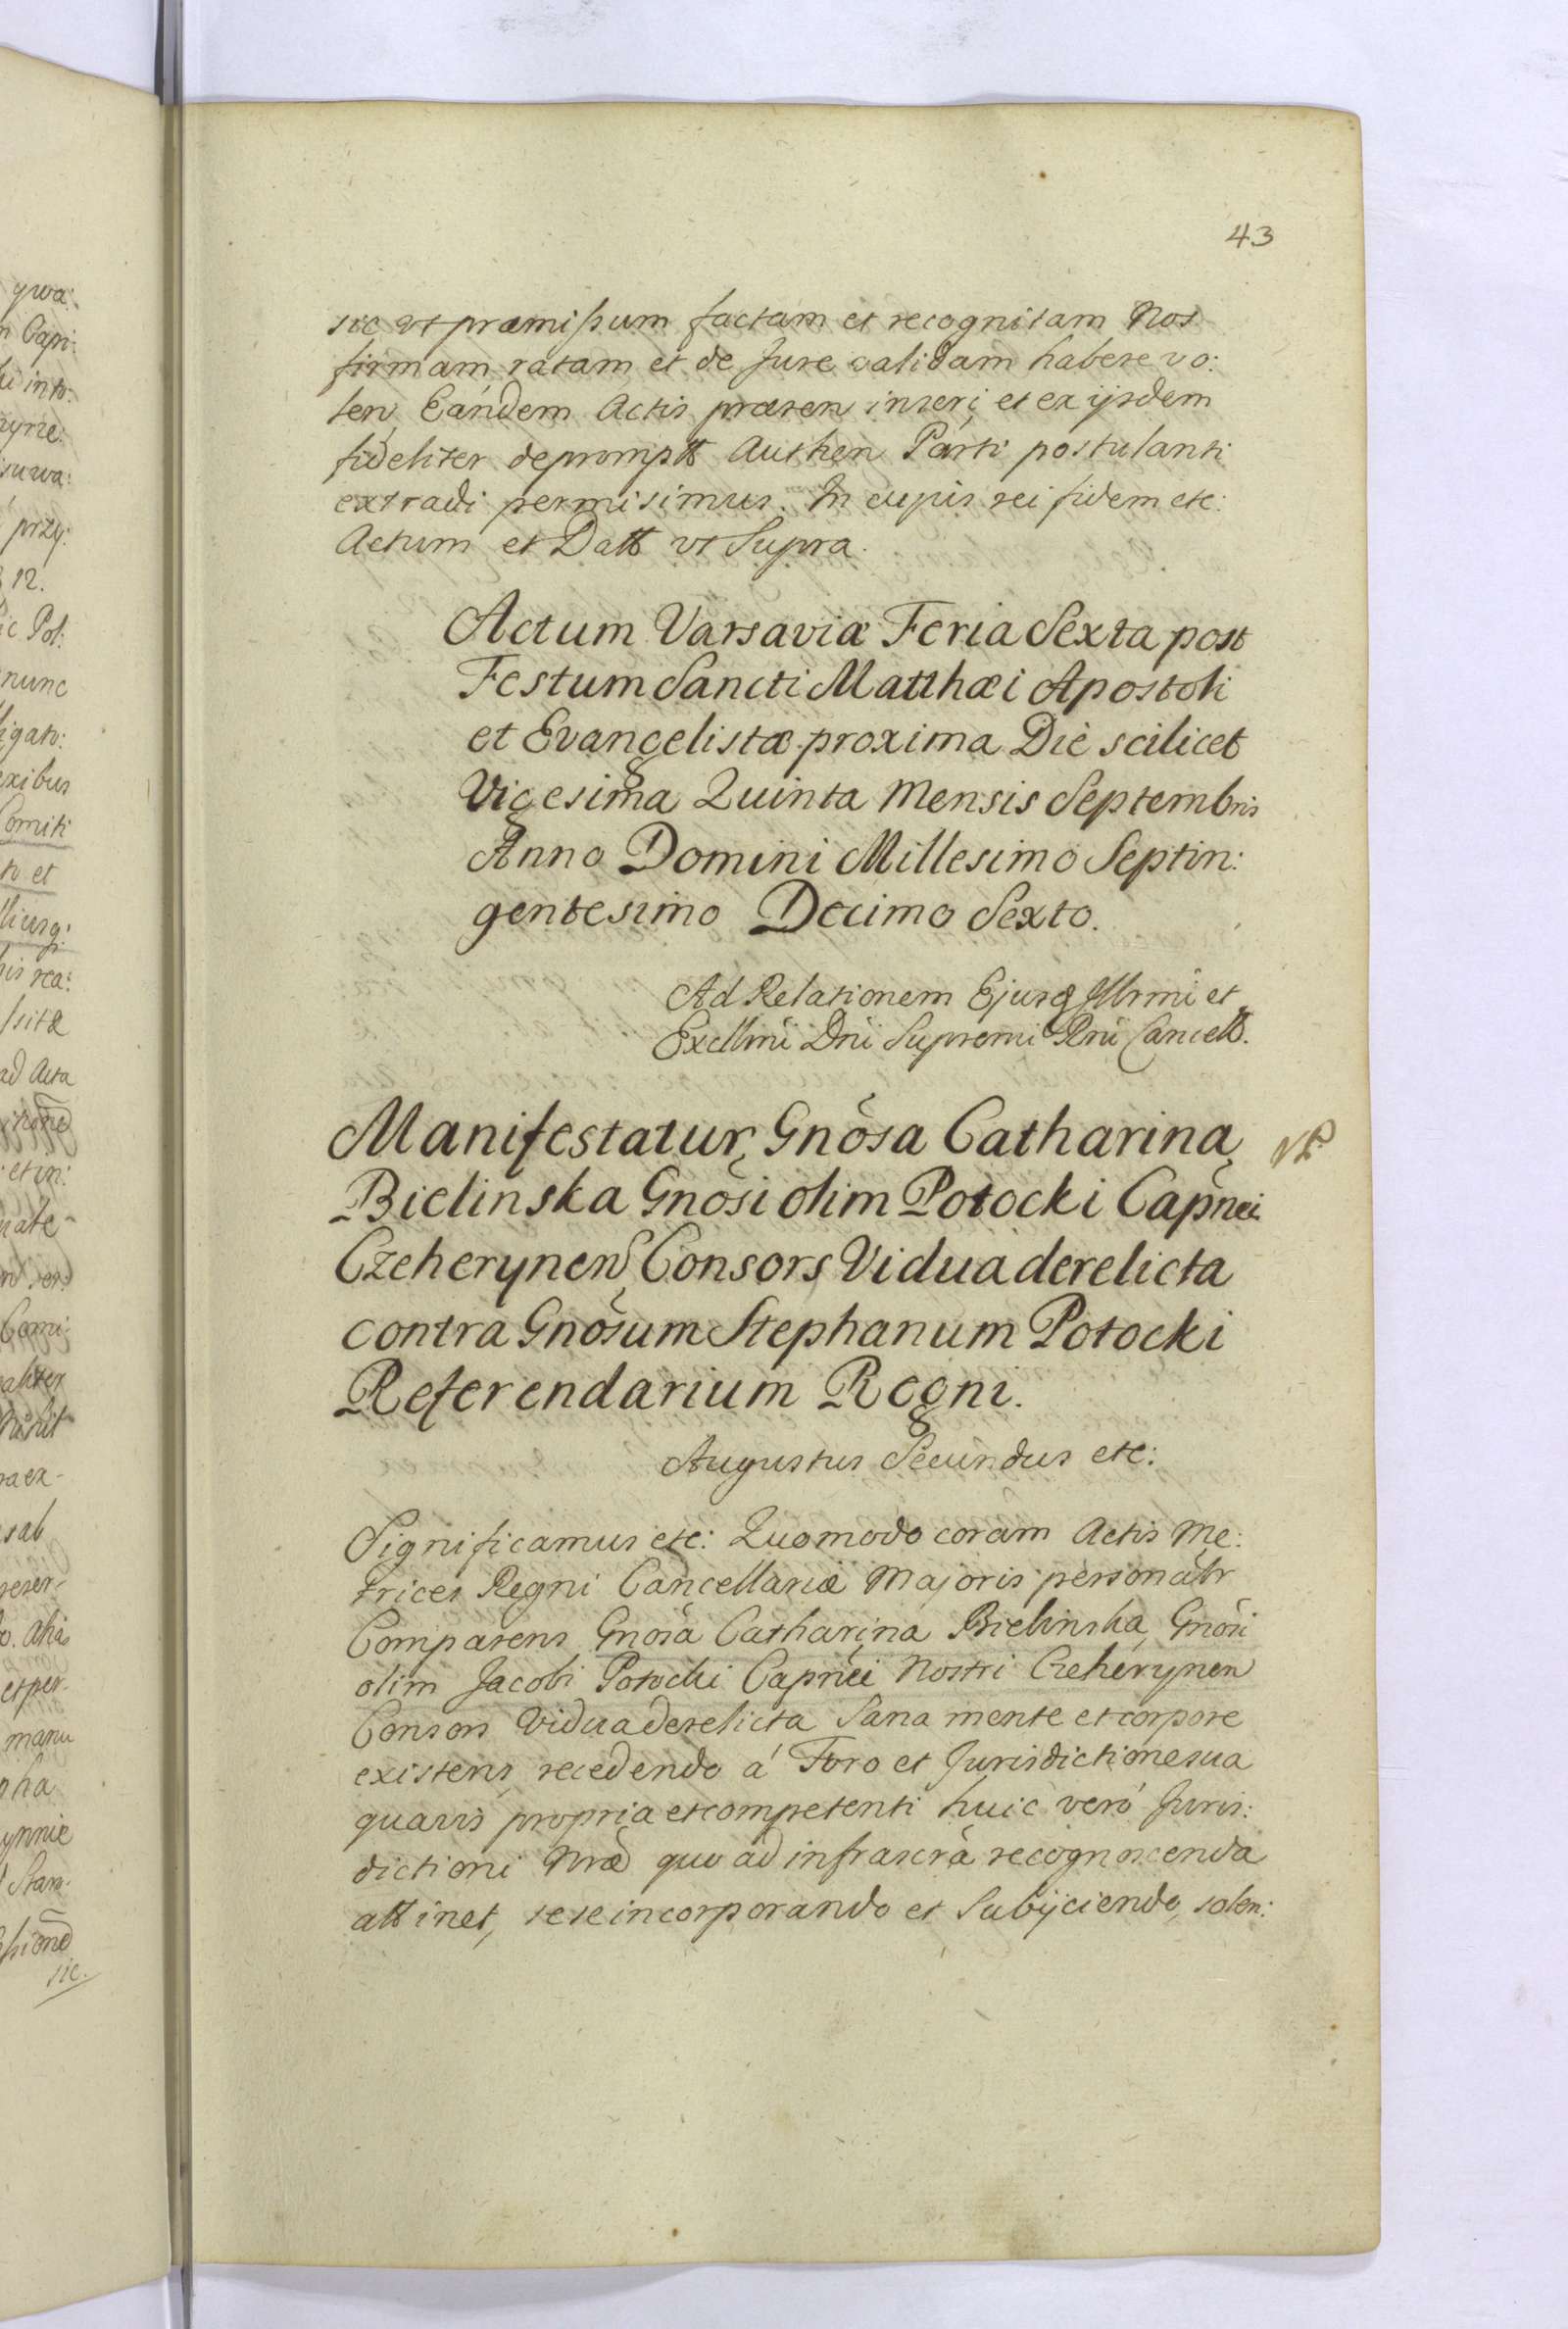 43
sic ut præmissum factam et recognitam Nos
firmam ratam et de Jure validam habere vo:
len Eandem Actis præsen inseri et ex ijsdem
fideliter deprompt Authen Parti postulanti
extradi permisimus. In cujus rei fidem etc:
Actum et Datt ut Supra.
Actum Varsaviæ Feria Sexta post
Festum Sancti Matthæi Apostoli
et Evangelistæ proxima Die scilicet
Vigesima Quinta Mensis Septembris
Anno Domini Millesimo Septin:
gentesimo Decimo Sexto.
Ad Relationem Ejusq Illrmi et
Excllmi Dni Supremi Rni Cancell.
Manifestatur Gnosa Catharina
Bielinska Gnosi olim Potocki Capnei
Czeherynen Consors Vidua derelicta
contra Gnosum Stephanum Potocki
Referendarium Regni.
Augustus Secundus etc:
Significamus etc: Quomodo coram Actis Me:
trices Regni Cancellariæ Majoris personalr
Comparens Gnosa Catharina Bielinska Gnosi
olim Jacobi Potocki Capnei Nostri Czeherynen
Consors Vidua derelicta Sana mente et corpore
existens recedendo á Foro et Jurisdictione sua
quavis propria et competenti huic veró Juris:
dictioni Nræ quo ad infrascra recognoscenda
attinet, sese incorporando et Subijciendo, solen:
ywa:
n Capi:
suwa:
przy:
12.
ic Pol:
nunc
ligato:
exibus
Comiti
to et
his rea:
ssitæ
ad Acta
et in:
sab
o. alias
et per
manu
sic.